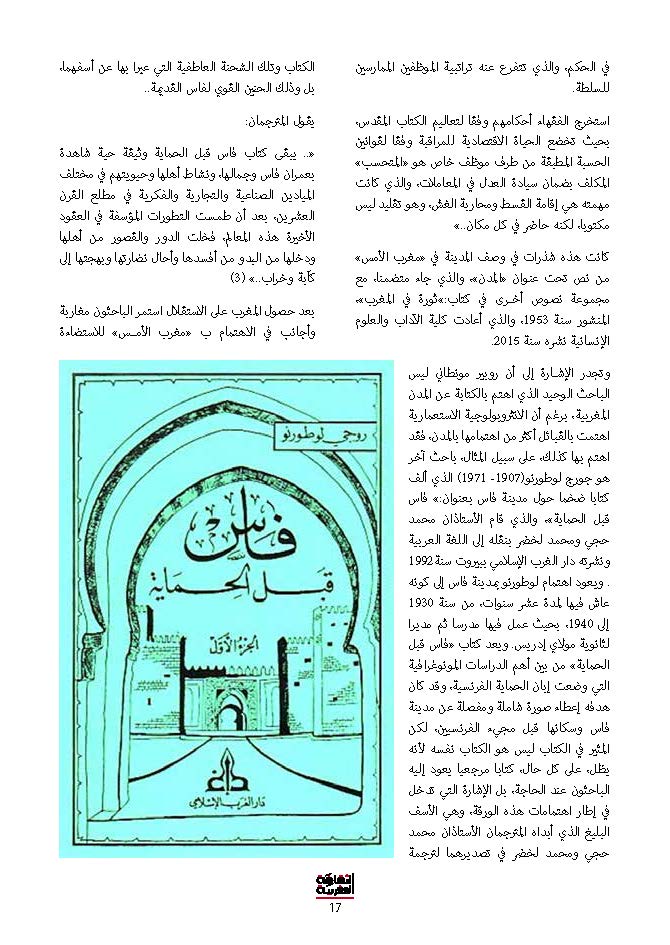 في الحكم، والذي تتفرع عنه تراتبية الموظفين الممارسين
للسلطة.
استخرج الفقهاء أحكامهم وفقا لتعاليم الكتاب المقدس،
بحيث تخضع الحياة الاقتصادية للمراقبة وفقا لقوانين
الحسبة المطبقة من طرف موظف خاص هو «المتحسب»
المكلف بضمان سيادة العدل في المعاملات، والذي كانت
مهمته هي إقامة القسط ومحاربة الغش، وهو تقليد ليس
مكتوبا، لكنه حاضر في كل مكان..»
كانت هذه شذرات في وصف المدينة في «مغرب الأمس»
من نص تحت عنوان «المدن»، والذي جاء متضمنا، مع
مجموعة نصوص أخرى في كتاب:«ثورة في المغرب»،
المنشور سنة 1953، والذي أعادت كلية الآداب والعلوم
الإنسانية نشره سنة 2015.
وتجدر الإشارة إلى أن روبير مونطاني ليس
الباحث الوحيد الذي اهتم بالكتابة عن المدن
المغربية، برغم أن الانثروبولوجية الاستعمارية
اهتمت بالقبائل أكثر من اهتمامها بالمدن، فقد
اهتم بها كذلك، على سبيل المثال، باحث آخر
هو جورج لوطورنو(1907- 1971) الذي ألف
كتابا ضخما حول مدينة فاس بعنوان:» فاس
قبل الحماية»، والذي قام الأستاذان محمد
حجي ومحمد لخضر بنقله إلى اللغة العربية
ونشرته دار الغرب الإسلامي ببيروت سنة 1992
. ويعود اهتمام لوطورنو بمدينة فاس إلى كونه
عاش فيها لمدة عشر سنوات، من سنة 1930
إلى 1940، بحيث عمل فيها مدرسا ثم مديرا
لثانوية مولاي إدريس. ويعد كتاب «فاس قبل
الحماية» من بين أهم الدراسات المونوغرافية
التي وضعت إبان الحماية الفرنسية، وقد كان
هدفه إعطاء صورة شاملة ومفصلة عن مدينة
فاس وسكانها قبل مجيء الفرنسيين، لكن
المثير في الكتاب ليس هو الكتاب نفسه لأنه
يظل، على كل حال، كتابا مرجعيا يعود إليه
الباحثون عند الحاجة، بل الإشارة التي تدخل
في إطار اهتمامات هذه الورقة، وهي الأسف
البليغ الذي أبداه المترجمان الأستاذان محمد
حجي ومحمد لخضر في تصديرهما لترجمة
الكتاب وتلك الشحنة العاطفية التي عبرا بها عن أسفهما،
بل وذلك الحنين القوي لفاس القديمة..
يقول المترجمان:
«.. يبقى كتاب فاس قبل الحماية وثيقة حية شاهدة
بعمران فاس وجمالها، ونشاط أهلها وحيويتهم في مختلف
الميادين الصناعية والتجارية والفكرية في مطلع القرن
العشرين، بعد أن طمست التطورات المؤسفة في العقود
الأخيرة هذه المعالم، فخلت الدور والقصور من أهلها
ودخلها من البدو من أفسدها وأحال نضارتها وبهجتها إلى
كآبة وخراب..» (3)
بعد حصول المغرب على الاستقلال استمر الباحثون مغاربة
وأجانب في الاهتمام ب «مغرب الأمس» للاستضاءة
روجي لوطورنو
فاس
قبل الحماية
الجزء الأول
دار الغرب الإسلامي
الثقافة
المغربية
17